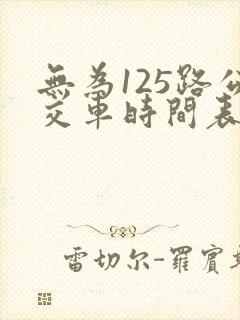 無為125路公
交車時間表
雷切尔-羅賓斯